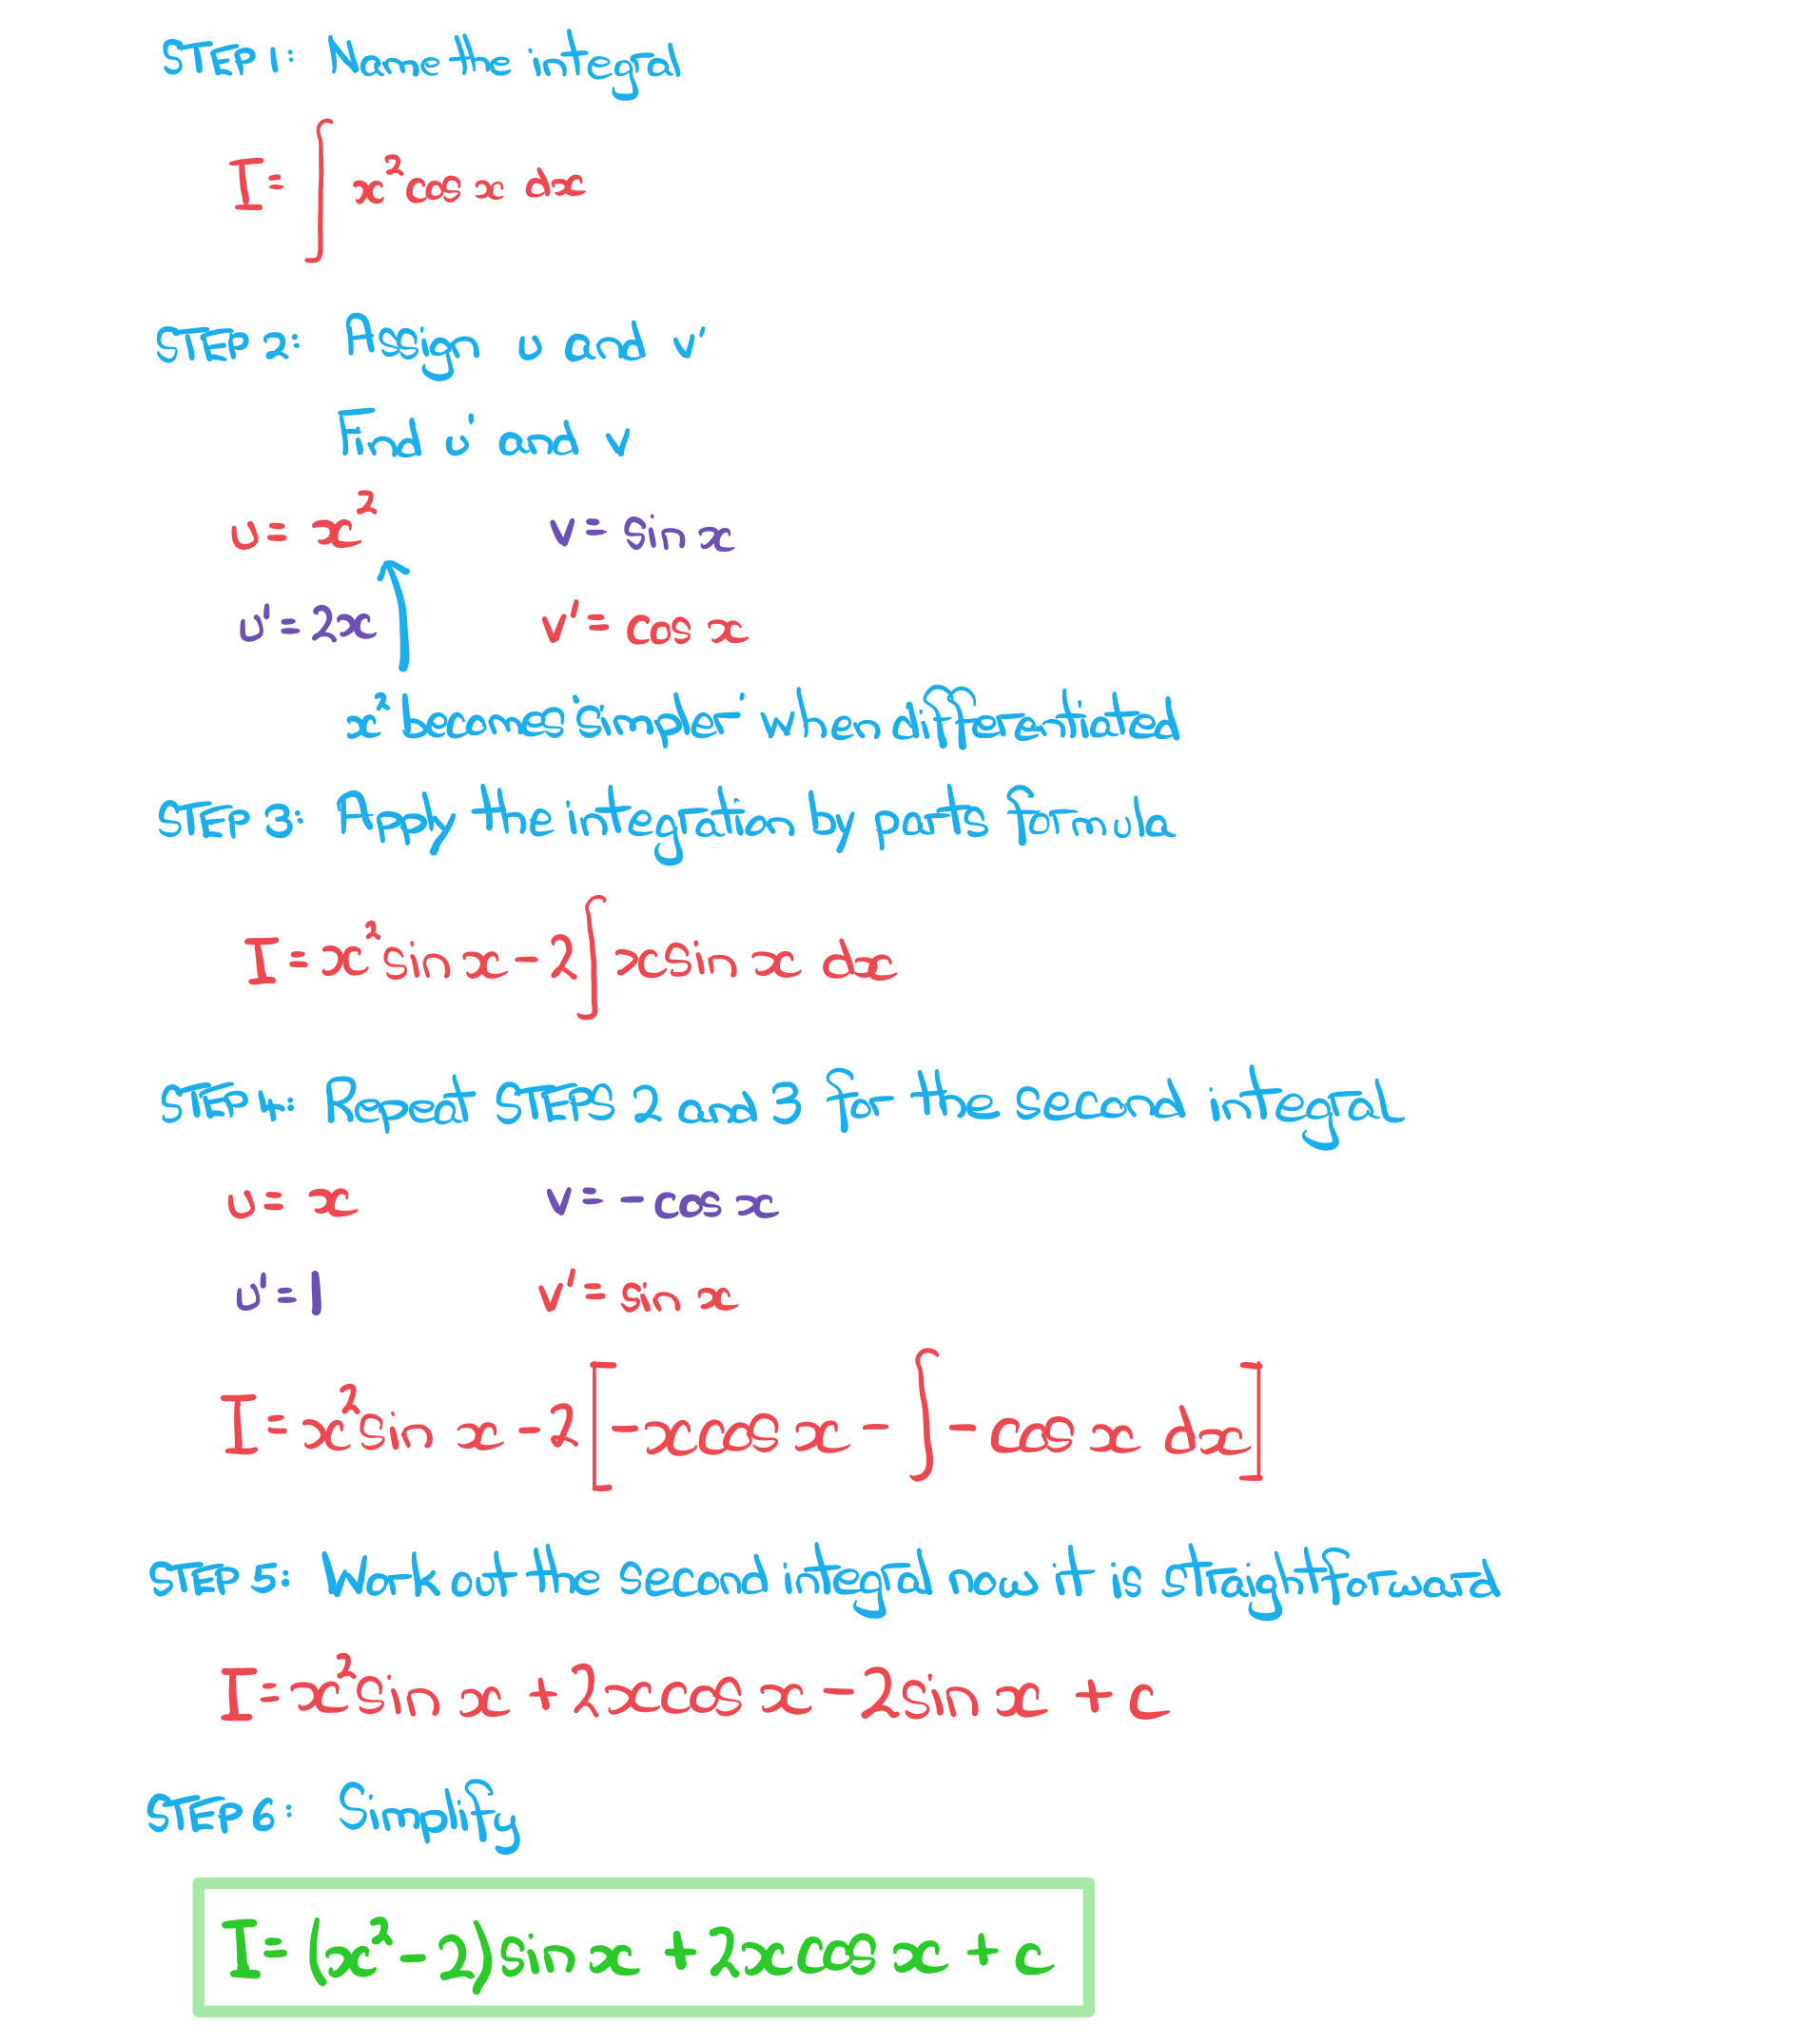 STEP 1: Name the integral
I = ∫ x² cos x dx
STEP 2: Assign u and v'
Find u' and v
u = x² v = sin x
u' = 2x v' = cos x
x² becomes 'simpler' when differentiated
STEP 3: Apply the integration by parts formula
I = x² sin x - 2 ∫ x sin x dx
STEP 4: Repeat STEPS 2 and 3 for the second integral
u = x v = - cos x
u' = 1 v' = sin x
I = x² sin x - 2 [ - x cos x - ∫ - cos x dx ]
STEP 5: Work out the second integral now it is straightforward
I = x² sin x + 2x cos x - 2 sin x + c
STEP 6: Simplify
I = (x² - 2) sin x + 2x cos x + c